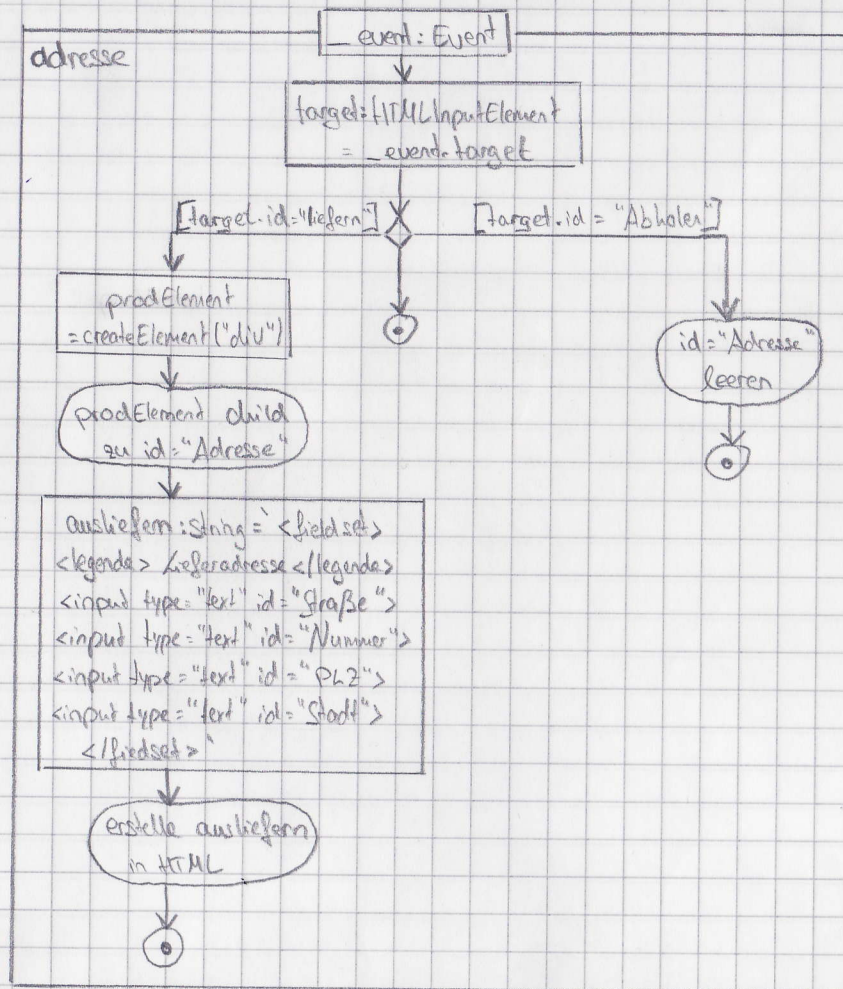 _event: Event
adresse
target: HTMLInputElement
= _event.target
[target.id="liefern"]
[target.id = "Abholen"]
prodElement
=createElement("div")
id="Adresse"
leeren
prodElement child
zu id="Adresse"
ausliefern:string=`<fieldset>
<legende> Lieferadresse </legende>
<input type="text" id="Straße">
<input type="text" id="Nummer">
<input type="text" id="PLZ">
<input type="text" id="Stadt">
</fiedset>`
erstelle ausliefern
in HTML